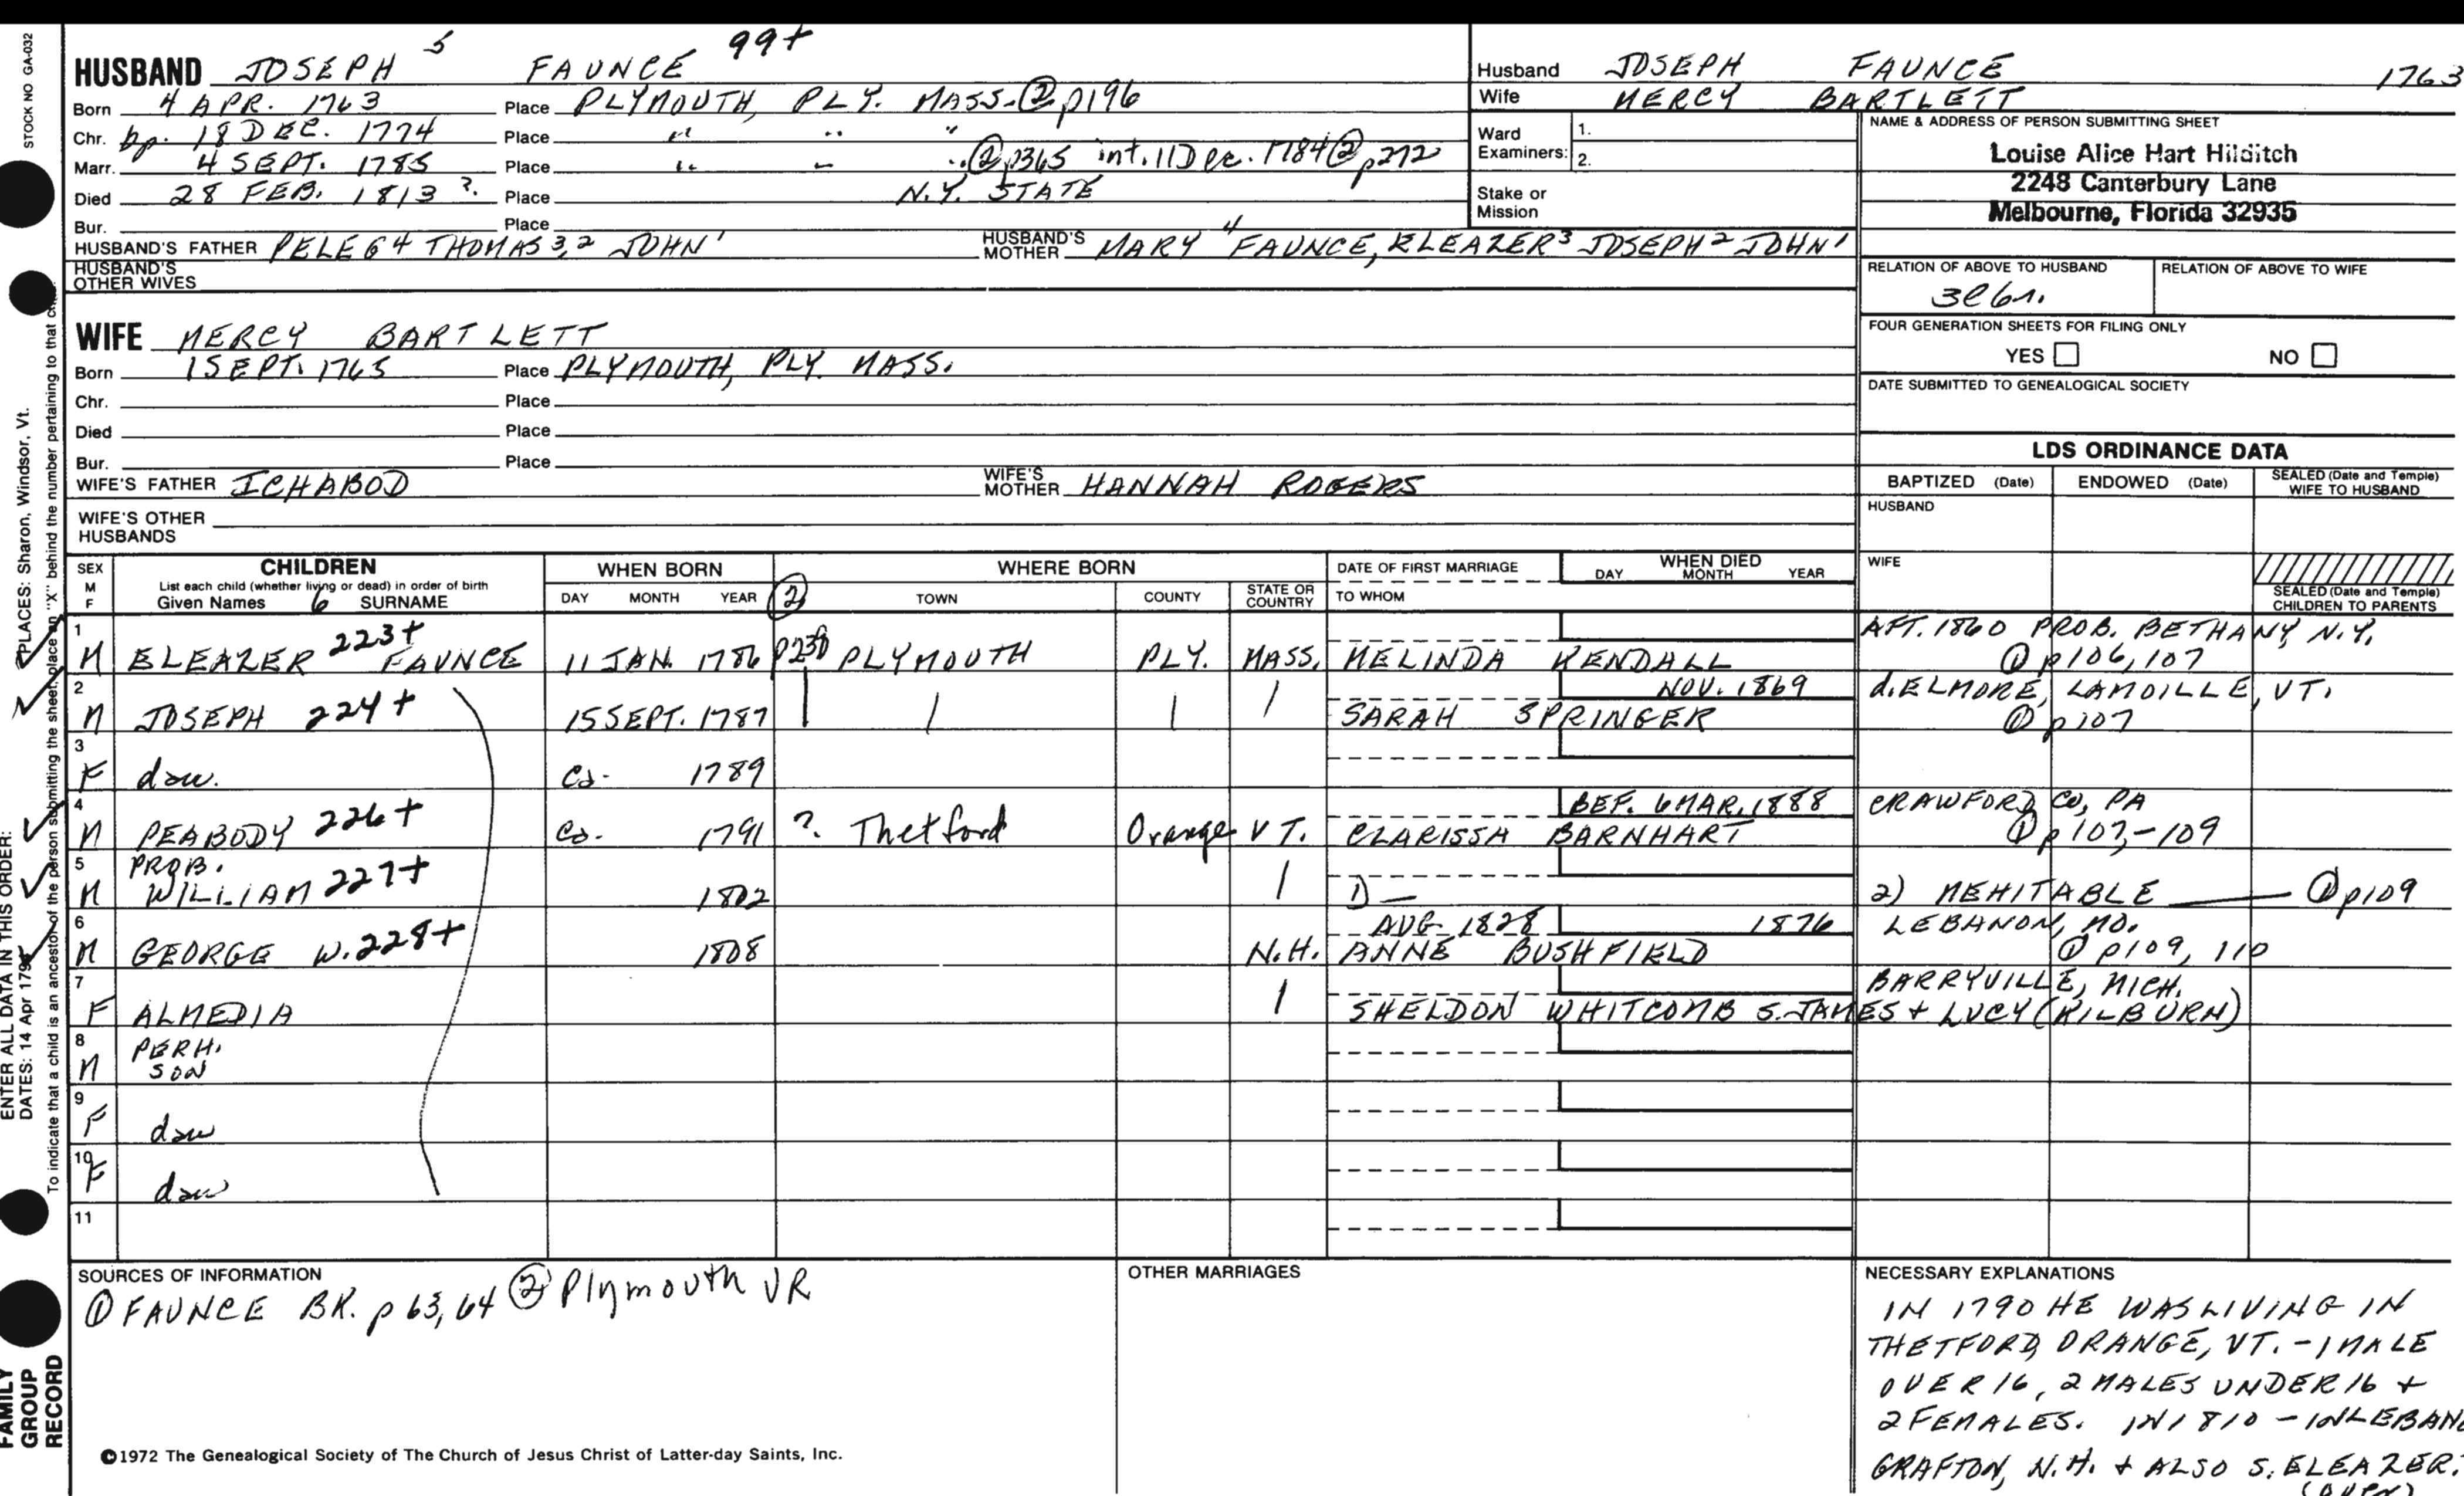 STOCK NO GA-032
HUSBAND JOSEPH 5 FAUNCE 99+
Born 4 APR. 1763 Place PLYMOUTH, PLY. MASS. ② p196
Chr. bp. 18 DEC. 1774 Place " " "
Marr. 4 SEPT. 1785 Place " " " ② p365 int. 11 Dec. 1784 ② p272
Died 28 FEB. 1813 ?. Place N.Y. STATE
Bur. Place
HUSBAND'S FATHER PELEG 4 THOMAS 3,2 JOHN 1 HUSBAND'S MOTHER MARY 4 FAUNCE, ELEAZER 3 JOSEPH 2 JOHN 1
HUSBAND'S OTHER WIVES
WIFE MERCY BARTLETT
Born 1 SEPT. 1765 Place PLYMOUTH, PLY. MASS.
Chr. Place
Died Place
Bur. Place
WIFE'S FATHER ICHABOD WIFE'S MOTHER HANNAH ROGERS
WIFE'S OTHER HUSBANDS
Husband JOSEPH FAUNCE 1763
Wife MERCY BARTLETT
Ward Examiners: 1.
2.
Stake or Mission
NAME & ADDRESS OF PERSON SUBMITTING SHEET
Louise Alice Hart Hilditch
2248 Canterbury Lane
Melbourne, Florida 32935
RELATION OF ABOVE TO HUSBAND RELATION OF ABOVE TO WIFE
FOUR GENERATION SHEETS FOR FILING ONLY
YES NO
DATE SUBMITTED TO GENEALOGICAL SOCIETY
LDS ORDINANCE DATA
BAPTIZED (Date) ENDOWED (Date) SEALED (Date and Temple) WIFE TO HUSBAND
HUSBAND
WIFE
SEALED (Date and Temple) CHILDREN TO PARENTS
SEX M F CHILDREN WHEN BORN WHERE BORN DATE OF FIRST MARRIAGE WHEN DIED
List each child (whether living or dead) in order of birth
Given Names 6 SURNAME DAY MONTH YEAR ② TOWN COUNTY STATE OR COUNTRY TO WHOM DAY MONTH YEAR
AFT. 1860 PROB. BETHANY, N.Y.
1 M ELEAZER 223+ FAUNCE 11 JAN. 1786 p230 PLYMOUTH PLY. MASS. MELINDA KENDALL ① p106, 107
NOV. 1869 d. ELMORE, LAMOILLE, VT.
2 M JOSEPH 224+ 15 SEPT. 1787 SARAH SPRINGER ① p107
3 F dau. Ca. 1789
BEF. 6 MAR. 1888 CRAWFORD CO, PA
4 M PEABODY 226+ Ca. 1791 ?. Thetford Orange VT. CLARISSA BARNHART ① p107,-109
5 PROB.
M WILLIAM 227+ 1802 1) — 2) MEHITABLE — ① p109
AUG. 1828 1876 LEBANON, MO.
6 M GEORGE W. 228+ 1808 N.H. ANNE BUSHFIELD ① p109, 110
BARRYVILLE, MICH.
7 F ALMEDIA SHELDON WHITCOMB S. JAMES + LUCY (KILBURN)
8 PERH.
M SON
9 F dau
10 F dau
11
SOURCES OF INFORMATION
① FAUNCE BK. p 63, 64 ② Plymouth VR
OTHER MARRIAGES
NECESSARY EXPLANATIONS
IN 1790 HE WAS LIVING IN
THETFORD, ORANGE, VT. - 1 MALE
OVER 16, 2 MALES UNDER 16 +
2 FEMALES. IN 1810 - IN LEBAN
GRAFTON, N.H. + ALSO S. ELEAZER.
(OVER)
©1972 The Genealogical Society of The Church of Jesus Christ of Latter-day Saints, Inc.
FAMILY GROUP RECORD
ENTER ALL DATA IN THIS ORDER:
DATES: 14 Apr 179
PLACES: Sharon, Windsor, Vt.
To indicate that a child is an ancestor of the person submitting the sheet, place an "X" behind the number pertaining to that